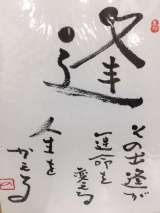 逢
その出逢が
運命を
変える
人生を
かえる